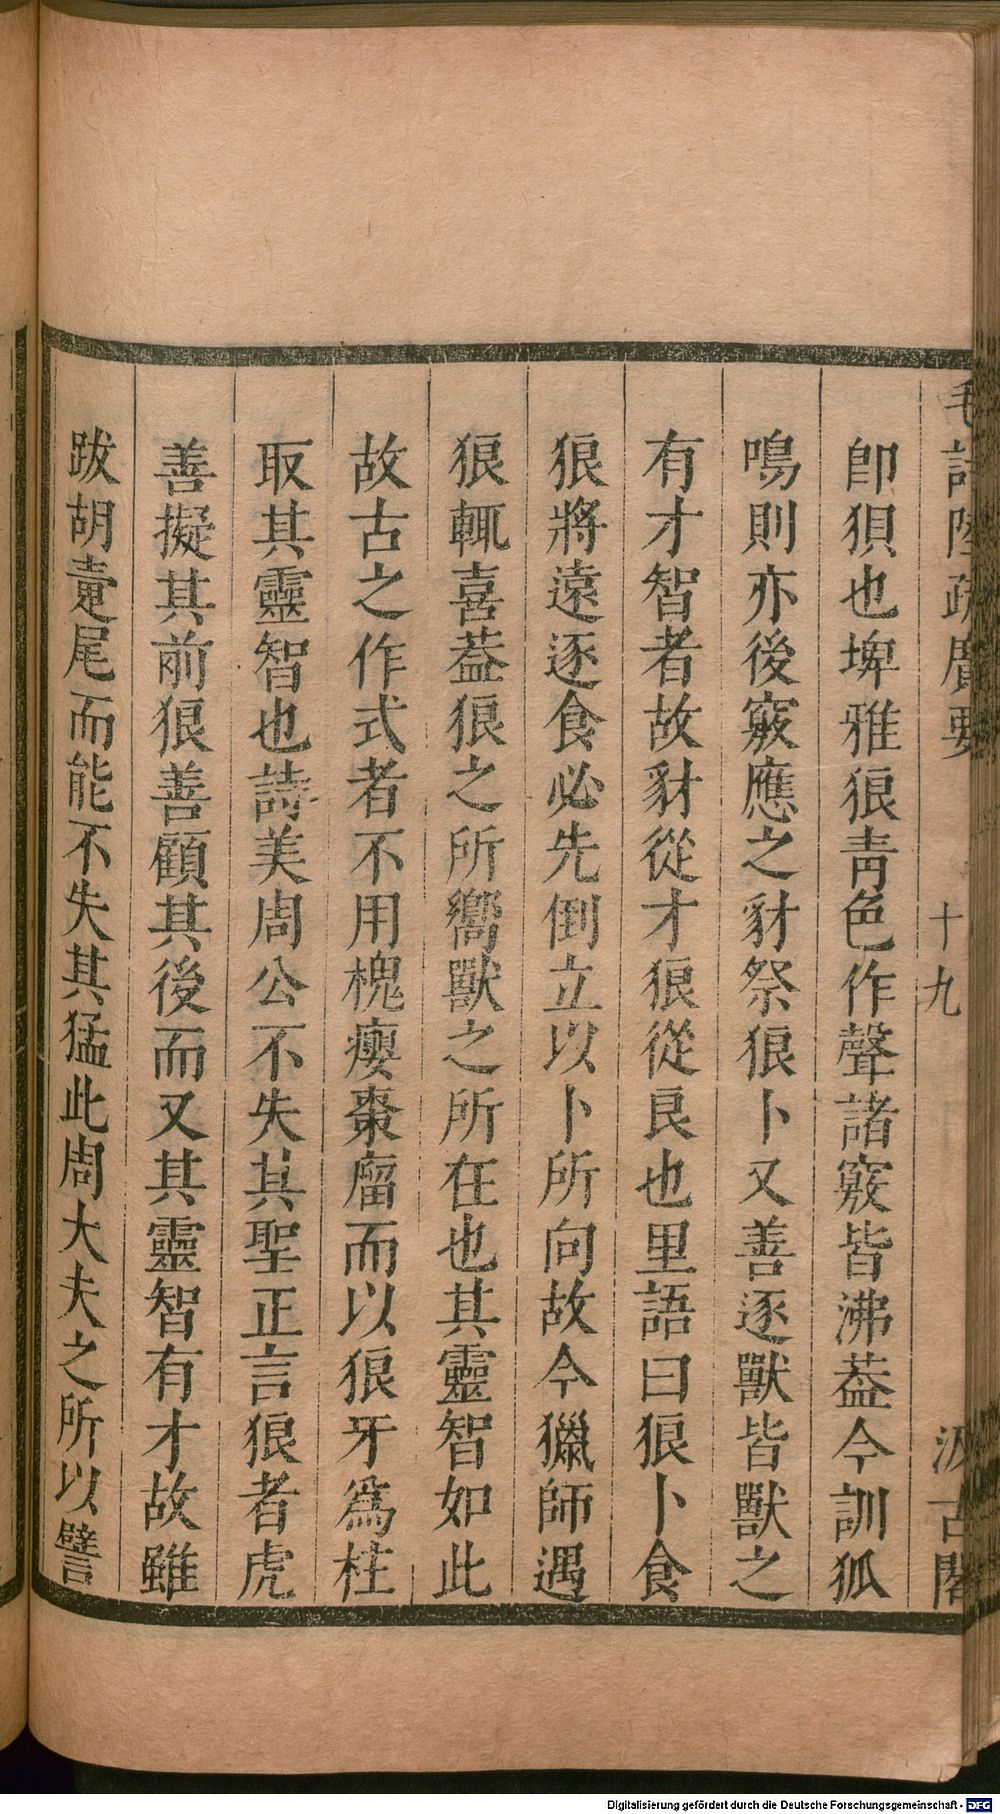 毛詩陸疏廣要 十九 汲古閣
卽狽也埤雅狼青色作聲諸竅皆沸葢今訓狐
鳴則亦後竅應之豺祭狼卜又善逐獸皆獸之
有才智者故豺從才狼從良也里語曰狼卜食
狼將遠逐食必先倒立以卜所向故今獵師遇
狼輒喜葢狼之所嚮獸之所在也其靈智如此
故古之作式者不用槐癭棗瘤而以狼牙爲柱
取其靈智也詩美周公不失其聖正言狼者虎
善擬其前狼善顧其後而又其靈智有才故雖
跋胡疐尾而能不失其猛此周大夫之所以譬
Digitalisierung gefördert durch die Deutsche Forschungsgemeinschaft - DFG